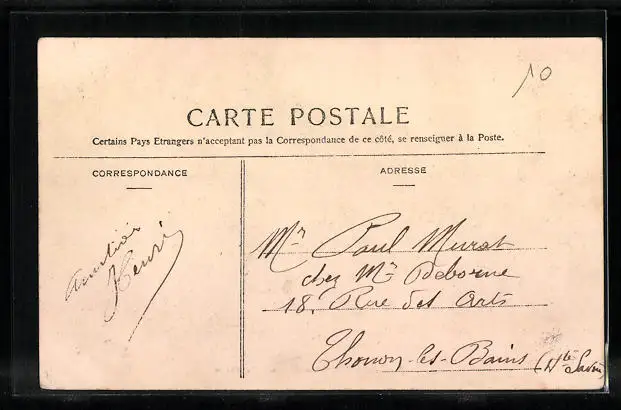 10
CARTE POSTALE
Certains Pays Etrangers n'acceptant pas la Correspondance de ce côté, se renseigner à la Poste.
CORRESPONDANCE
ADRESSE
Amitiés
Henri
Mr Paul Murat
chez Mr Deborne
18, Rue des Arts
Thonon-les-Bains (Hte Savoie)